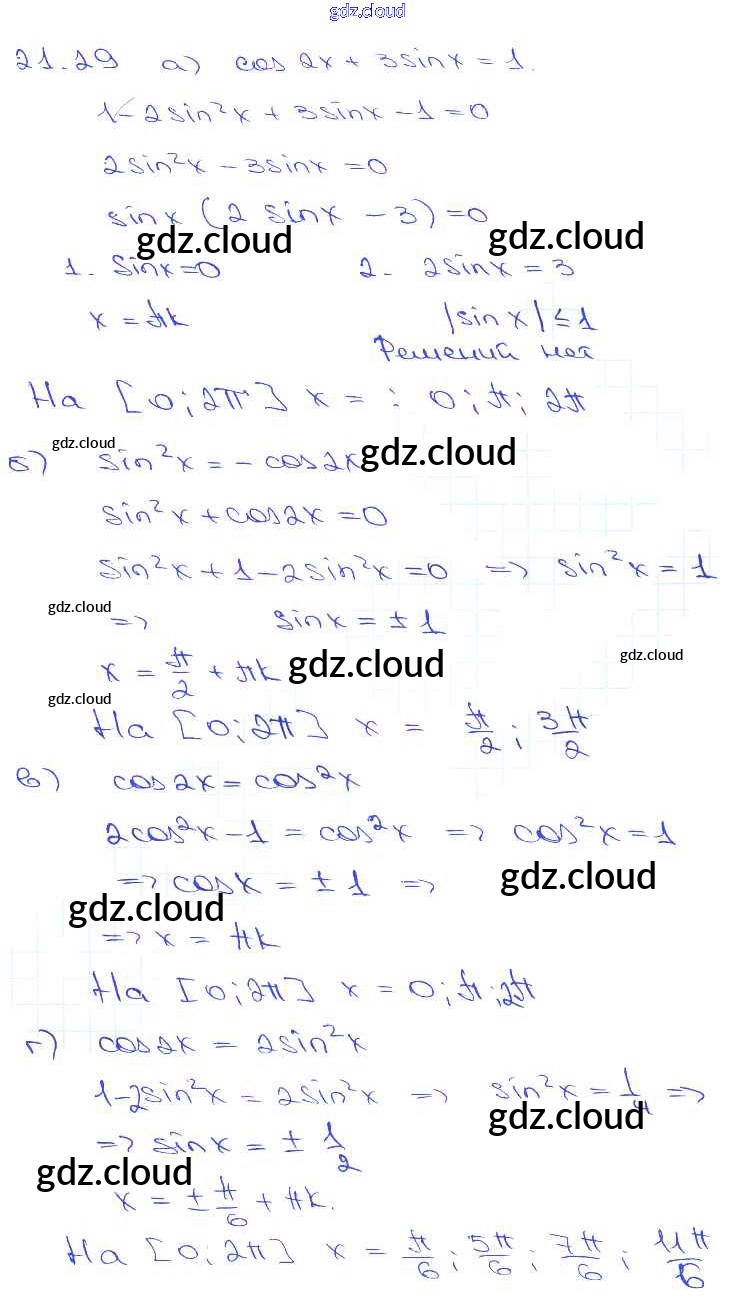 gdz.cloud
21.29 а) cos 2x + 3sinx = 1.
1 - 2sin²x + 3sinx - 1 = 0
2sin²x - 3sinx = 0
sinx (2 sinx - 3) = 0
gdz.cloud gdz.cloud
1. Sinx = 0 2. 2sinx = 3
x = πk |sin x| ≤ 1
Решений нет
На [0; 2π] x = : 0; π; 2π
gdz.cloud
б) sin²x = - cos2x gdz.cloud
sin²x + cos2x = 0
sin²x + 1 - 2sin²x = 0 => sin²x = 1
gdz.cloud
=> sinx = ± 1
x = π/2 + πk gdz.cloud gdz.cloud
gdz.cloud
На [0; 2π] x = π/2 ; 3π/2
в) cos2x = cos²x
2cos²x - 1 = cos²x => cos²x = 1
=> cosx = ± 1 => gdz.cloud
gdz.cloud
=> x = πk
На [0; 2π] x = 0; π; 2π
г) cos2x = 2sin²x
1 - 2sin²x = 2sin²x => sin²x = 1/4 =>
gdz.cloud
=> sinx = ± 1/2
gdz.cloud
x = ± π/6 + πk.
На [0; 2π] x = π/6 ; 5π/6 ; 7π/6 ; 11π/6